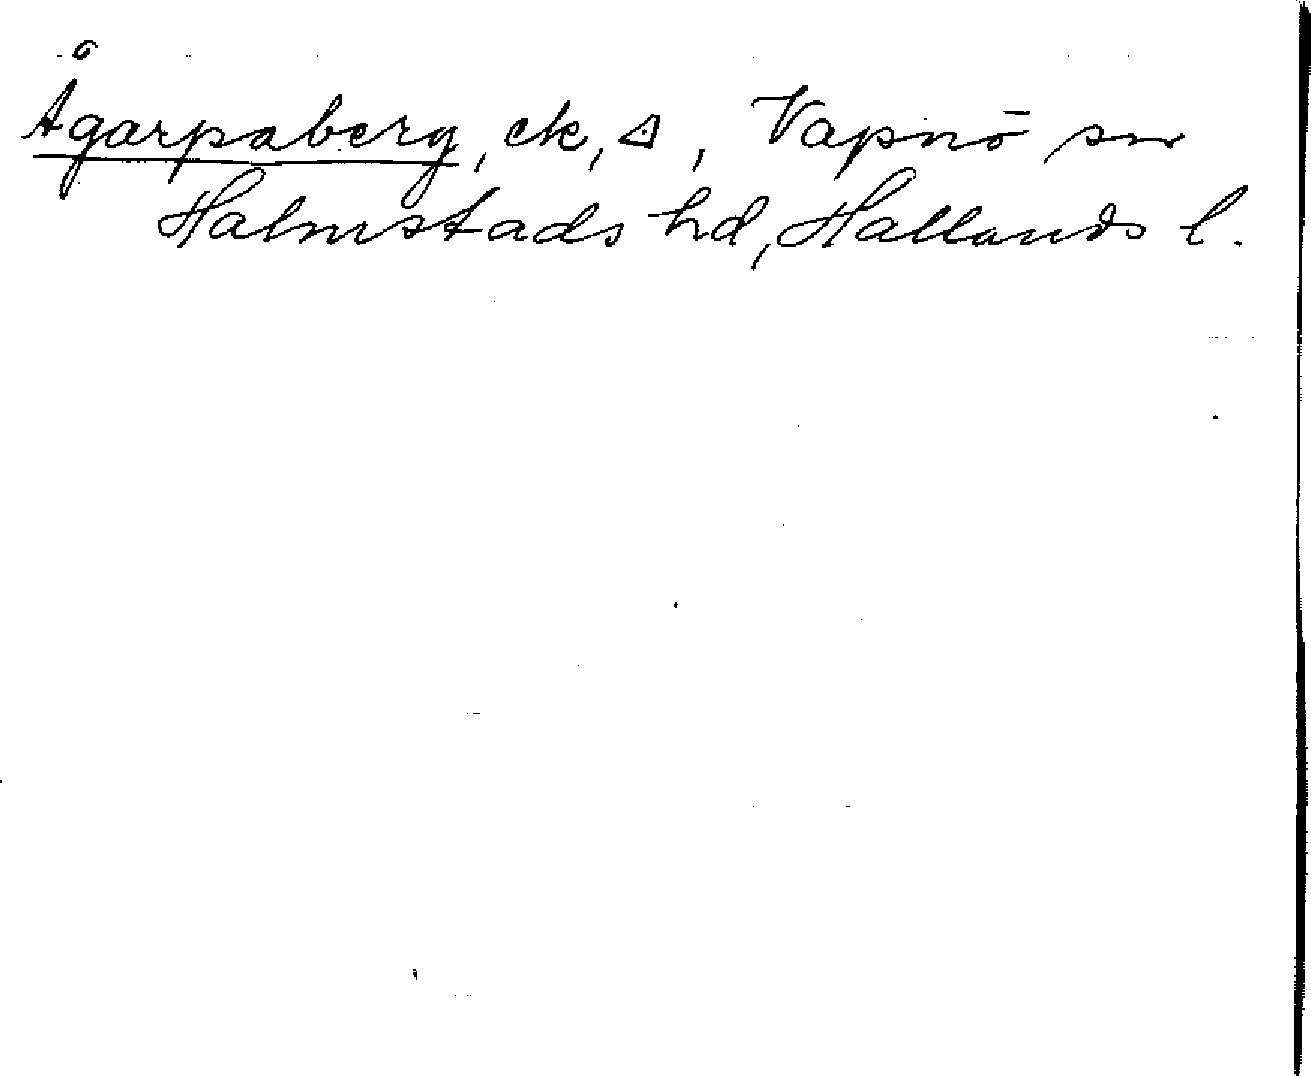 Ågarpaberg, ek, ∆, Vapnö sn
Halmstads hd, Hallands l.